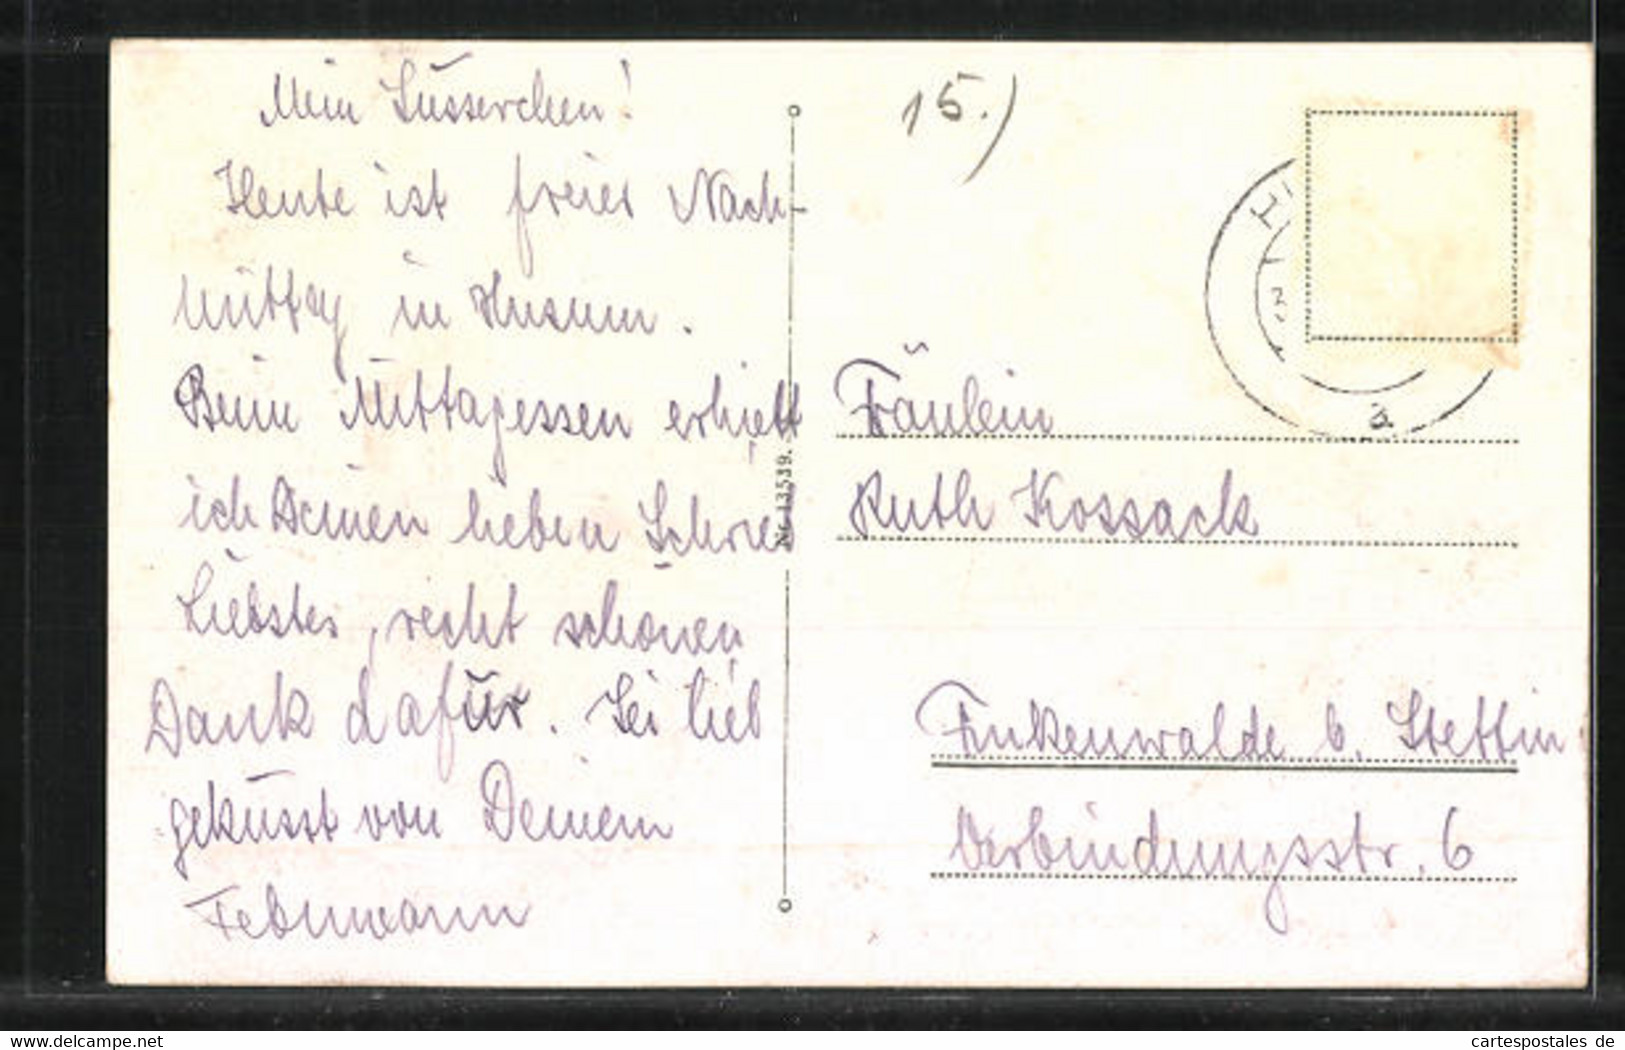 15.)
Mein Süsserchen!
Heute ist freier Nach-
mittag in Husum.
Beim Mittagessen erhielt
ich Deinen lieben Schrieb
Liebster, recht schönen
Dank dafür. Sei lieb
geküsst von Deinem
Nr. 13539.
Fräulein
Ruth Kossack
Finkenwalde b. Stettin
Verbindungsstr. 6
cartespostales de